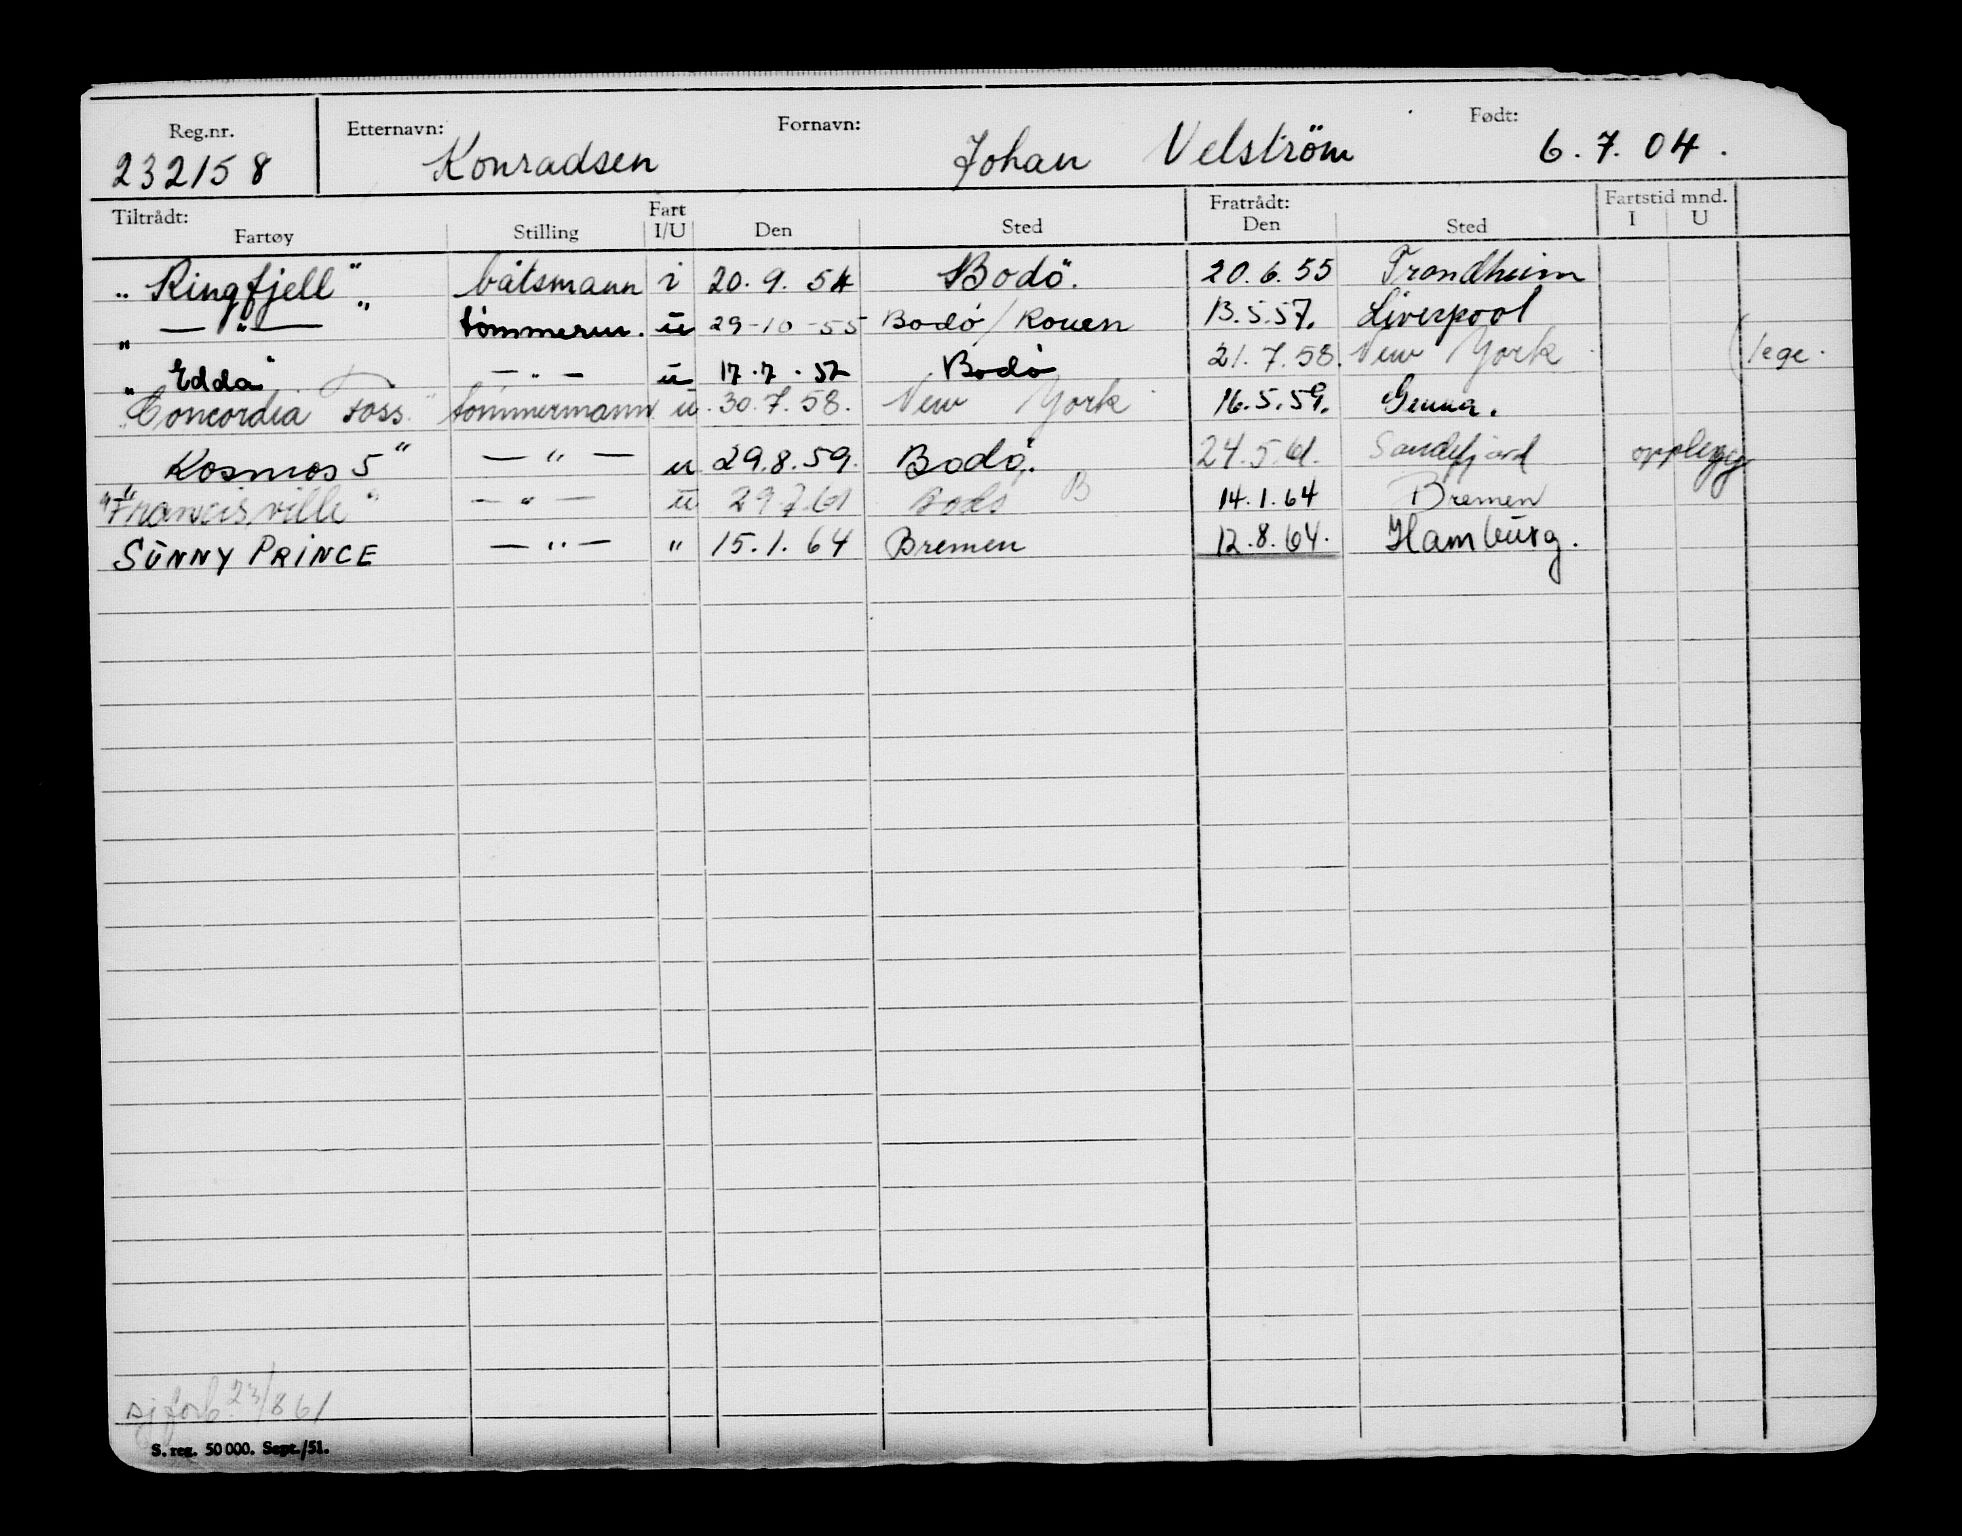 Reg.nr. Etternavn: Fornavn: Født:
232158 Konradsen Johan Velström 6.7.04.
Tiltrådt: Fart Fratrådt: Fartstid mnd.
Fartøy Stilling I/U Den Sted Den Sted I U
"Ringfjell" båtsmann i 20.9.54 Bodö. 20.6.55 Trondheim
" — " — " tömmerm. u 29-10-55 Bodö/Rouen 13.5.57. Liverpool
"Edda" — " — u 17.7.57 Bodö 21.7.58. New York (lege.
"Concordia Foss" tömmermann u. 30.7.58. New York 16.5.59. Genua.
"Kosmos 5" — " — u 29.8.59. Bodö. 24.5.61. Sandefjord opplegg
"Francisville" — " — u 29.7.61 Bodö B 14.1.64 Bremen
SUNNY PRINCE — " — " 15.1.64 Bremen 12.8.64. Hamburg.
sj forb 23/8 61
S. reg. 50 000. Sept./51.